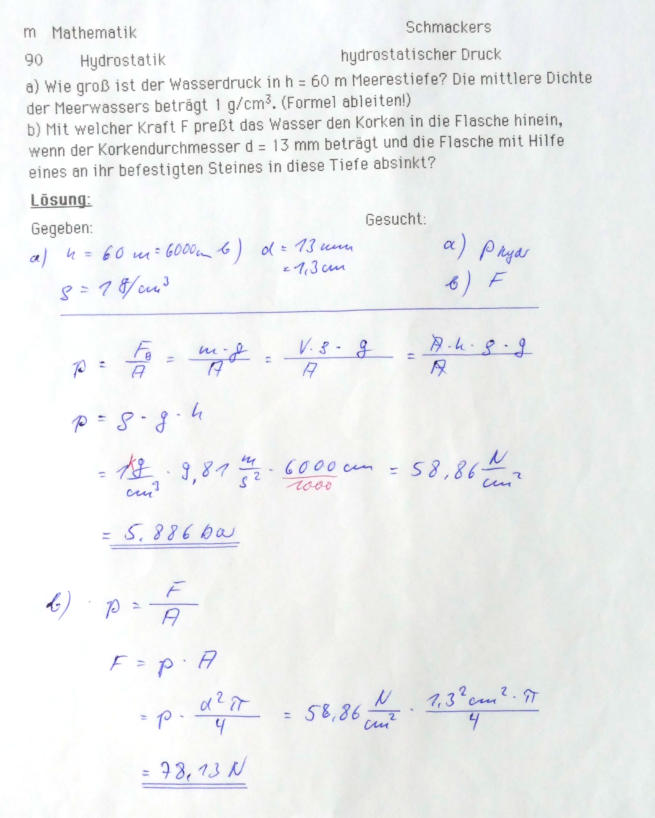 m Mathematik Schmackers
90 Hydrostatik hydrostatischer Druck
a) Wie groß ist der Wasserdruck in h = 60 m Meerestiefe? Die mittlere Dichte
der Meerwassers beträgt 1 g/cm³. (Formel ableiten!)
b) Mit welcher Kraft F preßt das Wasser den Korken in die Flasche hinein,
wenn der Korkendurchmesser d = 13 mm beträgt und die Flasche mit Hilfe
eines an ihr befestigten Steines in diese Tiefe absinkt?
Lösung:
Gegeben: Gesucht:
a) h = 60 m = 6000cm b) d = 13 mm a) p hydr
= 1,3 cm
ρ = 1 g/cm³ b) F
p = F_g/A = m·g/A = V·ρ·g/A = A·h·ρ·g/A
p = ρ · g · h
= 1 kg/cm³ · 9,81 m/s² · 6000 cm/1000 = 58,86 N/cm²
= 5,886 bar
b) p = F/A
F = p · A
= p · d²π/4 = 58,86 N/cm² · 1,3² cm² · π/4
= 78,13 N